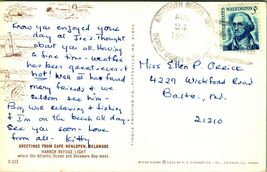 Know you enjoyed your
day at Joe's. Thought
about you all. Having
a fine time - weather
has been great - even it
hot! Walt has found
many friends &
seldom see him -
Big Will relaxing & fishing
& I'm on the beach all day.
See you soon - Love
from all - Kitty
GREETINGS FROM CAPE HENLOPEN, DELAWARE
HARBOR REFUGE LIGHT
where the Atlantic Ocean and Delaware Bay meet.
POST CARD
WASHINGTON 5¢
Miss Ellen P.
4229 Wickford Road
Balto., Md.
21210